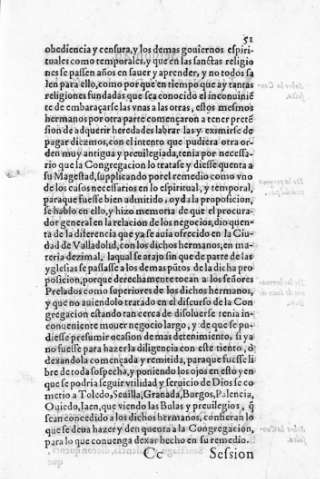 51
obediencia y censura, y los demas gouiernos espiri-
tuales como temporales, y que en las sanctas religio
nes se passen años en sauer y aprender, y no todos sa
len para ello, como porque en tiempo que ay tantas
religiones fundadas que sea conocido el inconuiniē
te de embaraçarse las vnas a las otras, estos mesmos
hermanos por otra parte començaron a tener preté
sion de adquerir heredades labrar las y eximirse de
pagar diezmos, con el intento que pudiera otra or-
den muy antigua y preuilegiada, tenia por necessa-
rio que la Congregacion lo tratase y diesse quenta a
su Magestad, supplicando por el remedio como vno
de los casos necessarios en lo espiritual, y temporal,
para que fuesse bien admitido, oyda la proposicion,
se hablo en ello, y hizo memoria de que el procura-
dor general en la relacion de los negocios, dio quen-
ta de la diferencia que ya se auia ofrecido en la Ciu-
dad de Valladolid, con los dichos hermanos, en ma-
teria dezimal, laqual se atajo sin que de parte de las
yglesias se passasse a los demas pūtos de la dicha pro
posicion, porque derechamente tocan a los señores
Prelados como superiores de los dichos hermanos,
y que no auiendolo tratado en el discurso de la Con
gregacion estando tan cerca de disoluerse tenia in-
conueniente mouer negocio largo, y de que se pu-
diesse presumir ocasion de mas detenimiento, si ya
no fuesse para hazer la diligencia con este tiento, ò
dexandola començada y remitida, para que fuesse li
bre de toda sospecha, y poniendo los ojos en esto y en
que se podria seguir vtilidad y seruicio de Dios se co
metio a Toledo, Seuilla, Granada, Burgos, Palencia,
Ouiedo, Iaen, que viendo las Bulas y preuilegios, q̃
sean concedido a los dichos hermanos, confieran lo
que se deua hazer y den quenta a la Congregacion,
para lo que conuenga dexar hecho en su remedio.
Cc Session